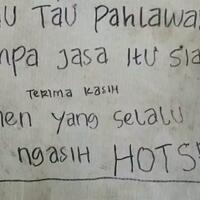 TAU PAHLAWA
JASA ITU SIA
TERIMA KASIH
YANG SELALU
NGASIH HOTS